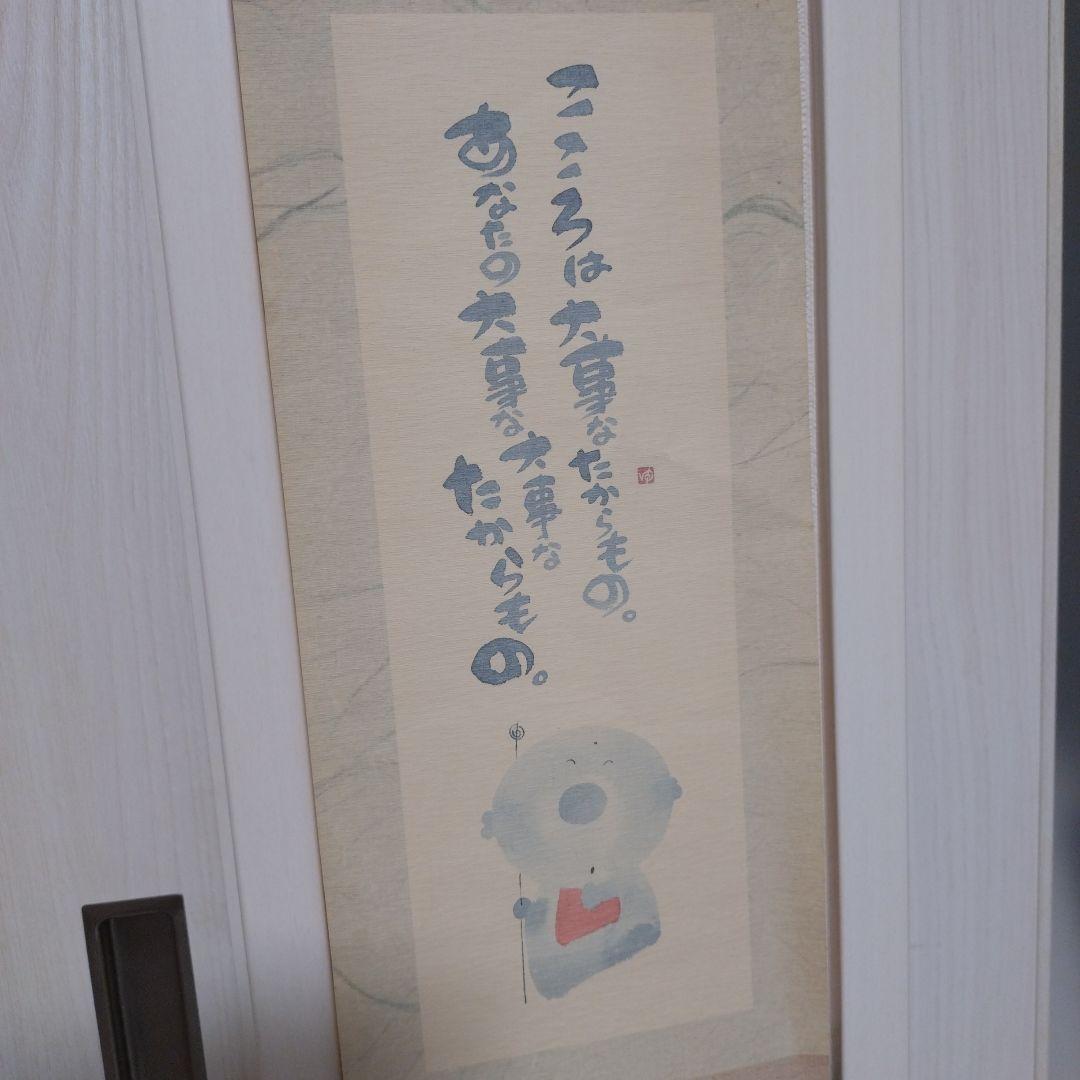 こころは大事なたからもの。
あなたの大事な大事な
たからもの。
ゆ
ゆ